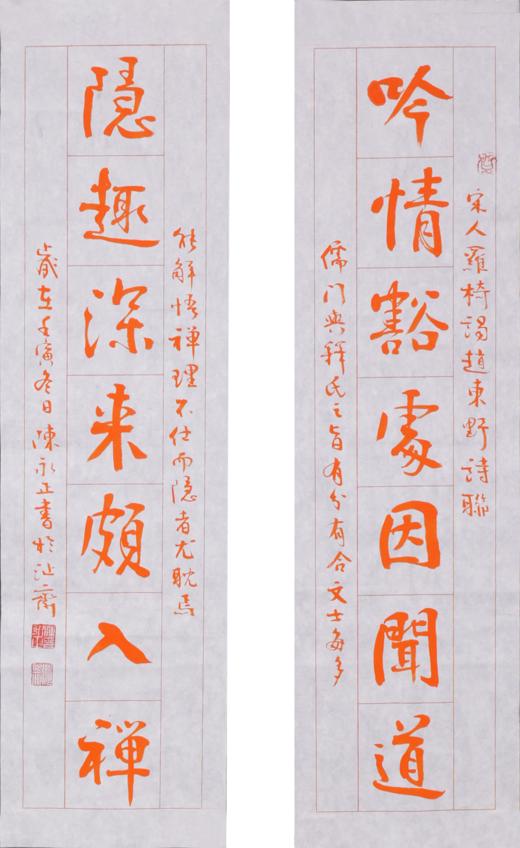 宋人羅椅謁趙東野詩聯
吟情豁處因聞道
儒門與釋氏之旨有分有合文士每多
能解悟禪理不仕而隱者尤耽焉
隱趣深来頗入禪
歲在壬寅冬日陳永正書於沚齋